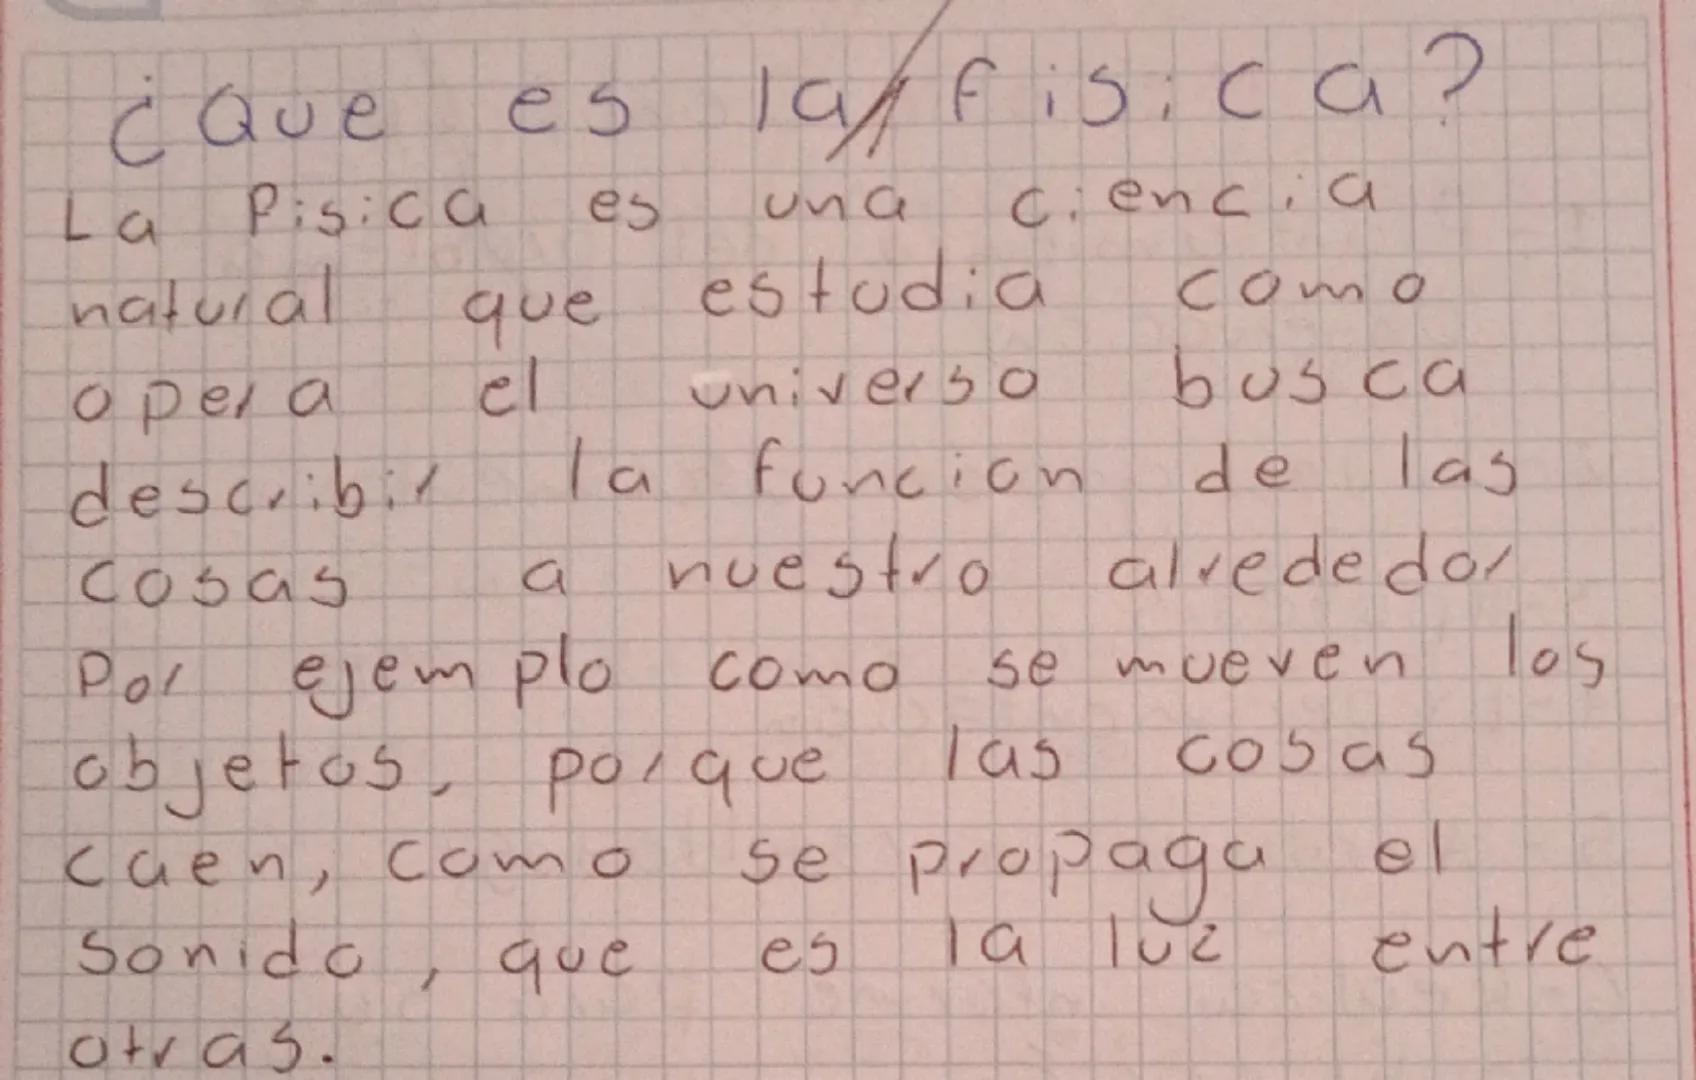 ¿Que es la fisica?
La fisica es una ciencia
natural que estudia como
opera el universo busca
describir la funcion de las
cosas a nuestro alrededor
Por ejemplo como se mueven los
objetos, porque las cosas
caen, como se propaga el
sonido, que es la luz entre
otras.